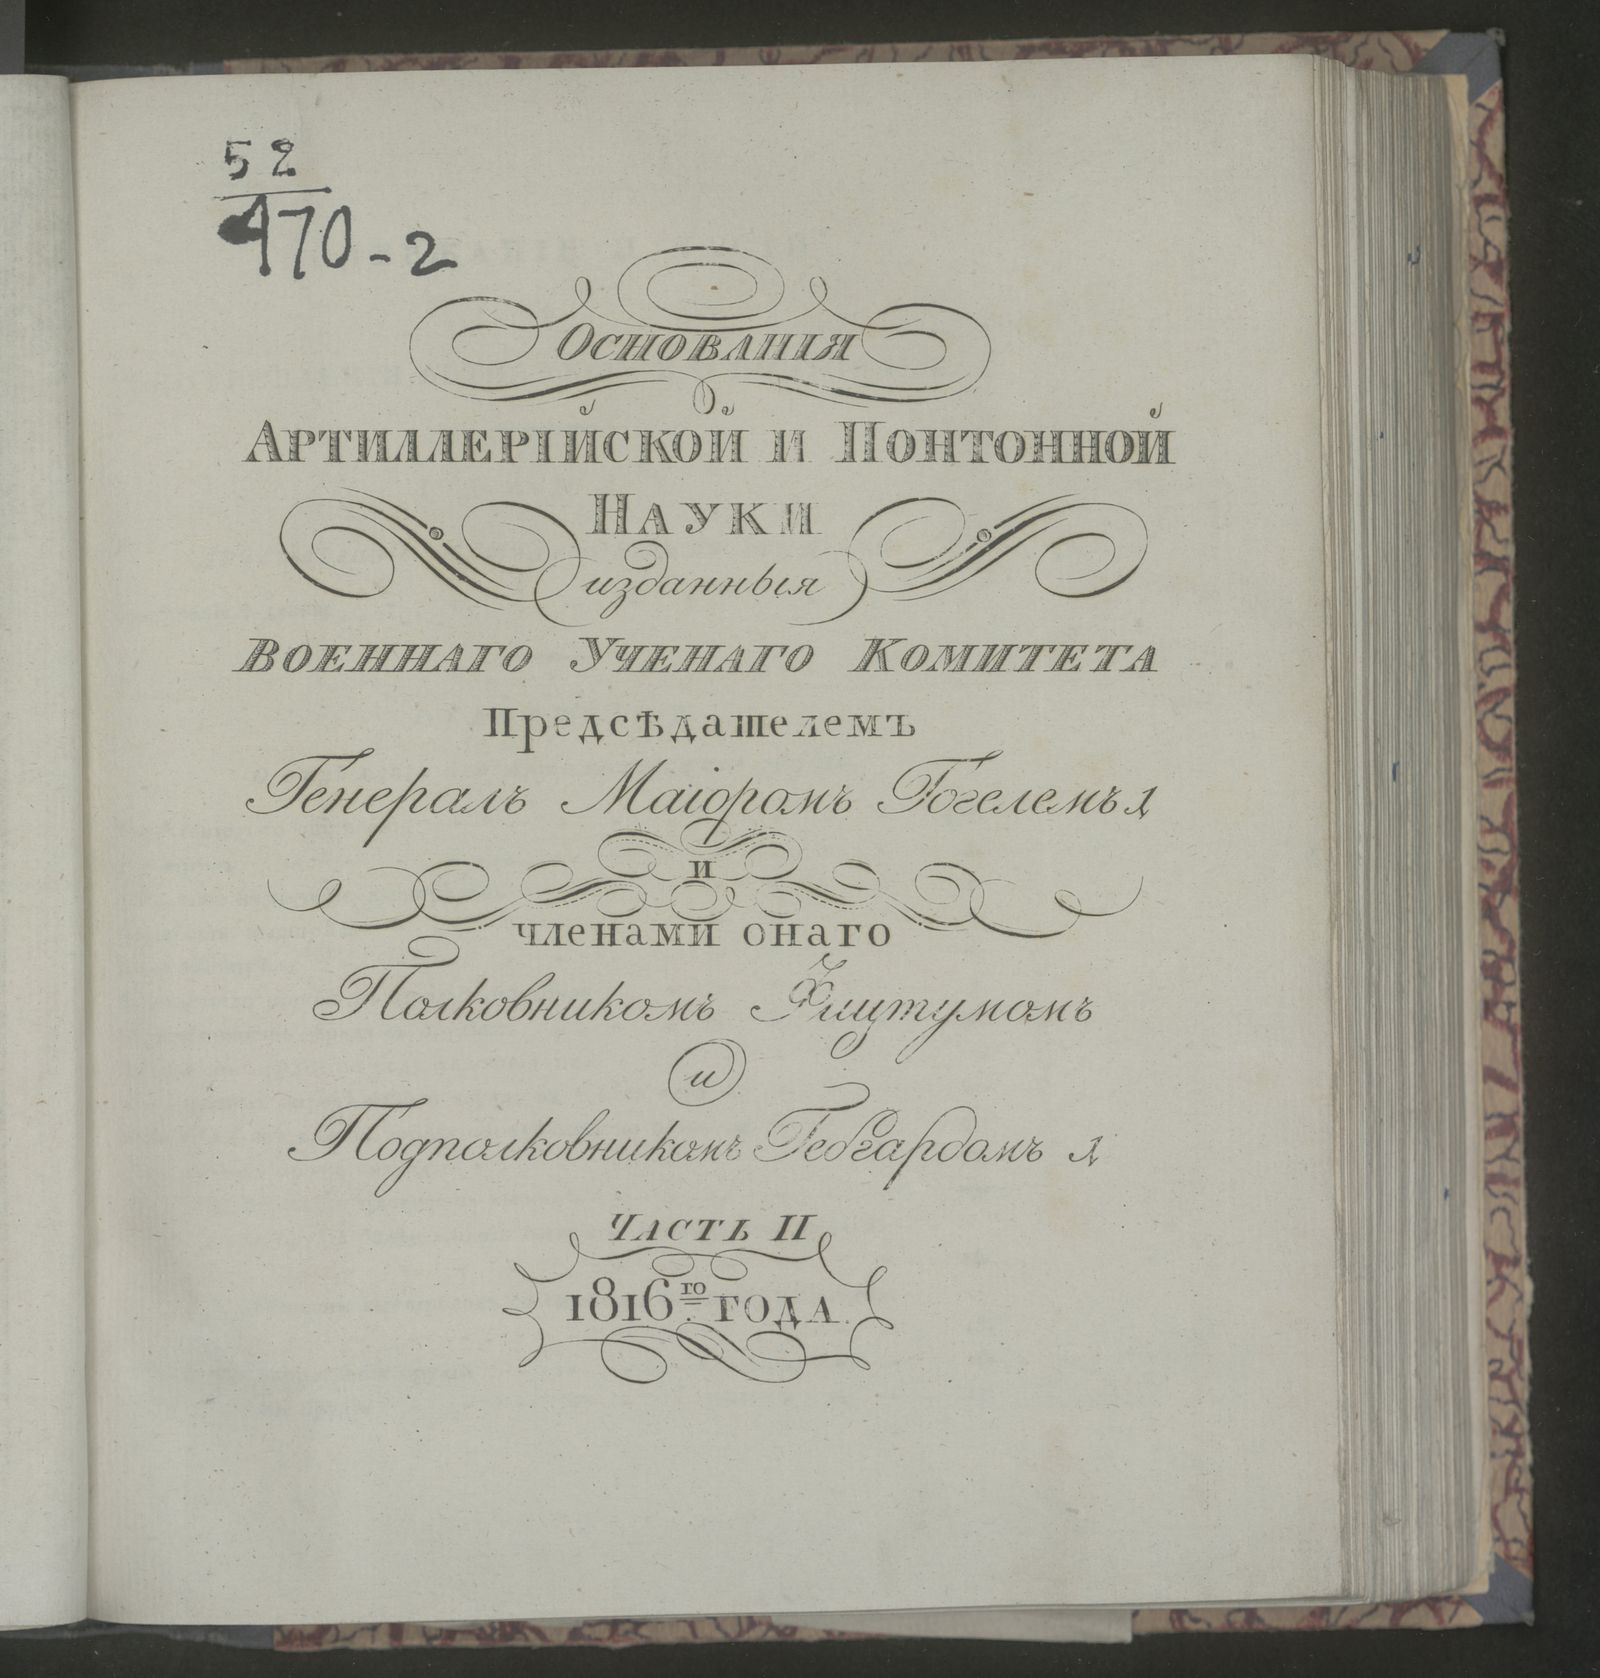 52
470-2
Основанія
Артиллерійской и Понтонной
Науки
изданныя
Военнаго Ученаго Комитета
Предсѣдателемъ
Генералъ Маіоромъ Гогелемъ 1
и
членами онаго
Полковникомъ Фицтумомъ
и
Подполковникомъ Гебгардомъ 1
Часть II
1816го года.